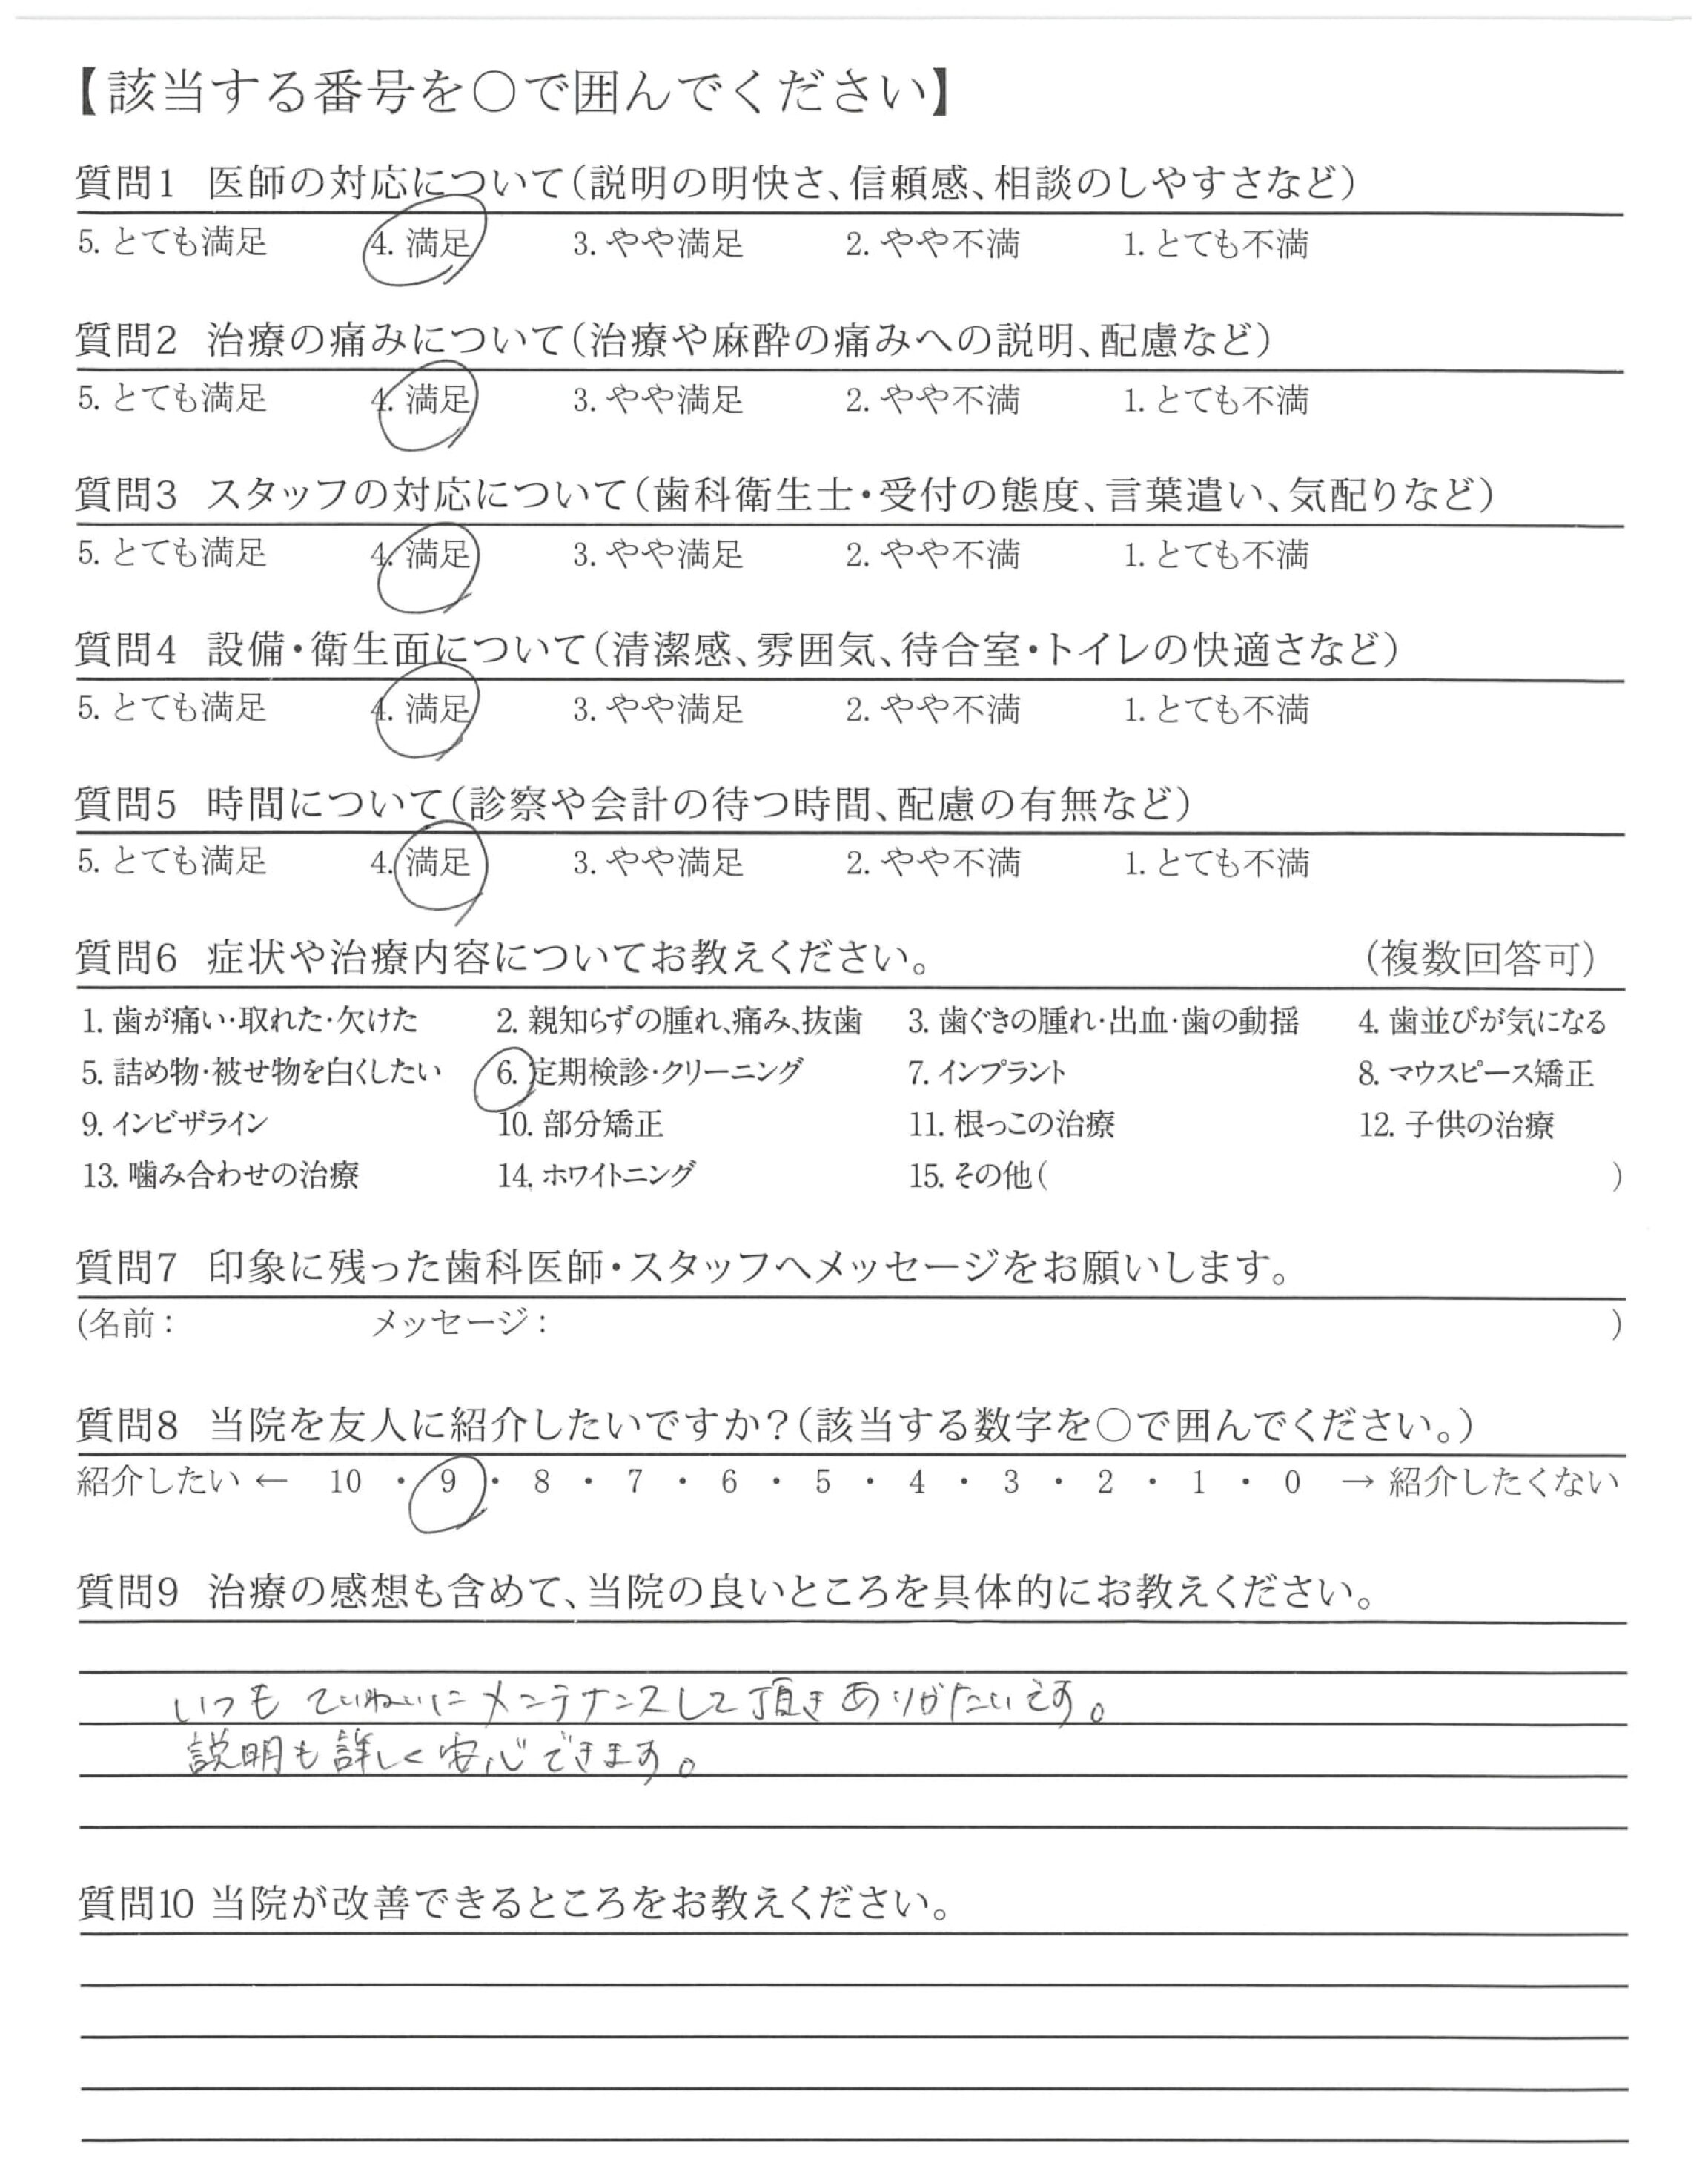 【該当する番号を○で囲んでください】
質問1 医師の対応について(説明の明快さ、信頼感、相談のしやすさなど)
5. とても満足 4. 満足 3. やや満足 2. やや不満 1. とても不満
質問2 治療の痛みについて(治療や麻酔の痛みへの説明、配慮など)
5. とても満足 4. 満足 3. やや満足 2. やや不満 1. とても不満
質問3 スタッフの対応について(歯科衛生士・受付の態度、言葉遣い、気配りなど)
5. とても満足 4. 満足 3. やや満足 2. やや不満 1. とても不満
質問4 設備・衛生面について(清潔感、雰囲気、待合室・トイレの快適さなど)
5. とても満足 4. 満足 3. やや満足 2. やや不満 1. とても不満
質問5 時間について(診察や会計の待つ時間、配慮の有無など)
5. とても満足 4. 満足 3. やや満足 2. やや不満 1. とても不満
質問6 症状や治療内容についてお教えください。 (複数回答可)
1. 歯が痛い・取れた・欠けた 2. 親知らずの腫れ、痛み、抜歯 3. 歯ぐきの腫れ・出血・歯の動揺 4. 歯並びが気になる
5. 詰め物・被せ物を白くしたい 6. 定期検診・クリーニング 7. インプラント 8. マウスピース矯正
9. インビザライン 10. 部分矯正 11. 根っこの治療 12. 子供の治療
13. 噛み合わせの治療 14. ホワイトニング 15. その他( )
質問7 印象に残った歯科医師・スタッフへメッセージをお願いします。
(名前： メッセージ： )
質問8 当院を友人に紹介したいですか？(該当する数字を○で囲んでください。)
紹介したい ← 10 ・ 9 ・ 8 ・ 7 ・ 6 ・ 5 ・ 4 ・ 3 ・ 2 ・ 1 ・ 0 → 紹介したくない
質問9 治療の感想も含めて、当院の良いところを具体的にお教えください。
いつもていねいにメンテナンスして頂きありがたいです。
説明も詳しく安心できます。
質問10 当院が改善できるところをお教えください。